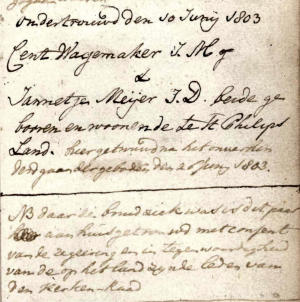 ondertrouwd den 10 Junij 1803
Cent. Wagemaker J. M. of
&
Jannetje Meijer J. D. beide ge
booren en woonende te St Philips
Land. hier getrouwd na het onverhin
derd gaan der geboden den 26 Junij 1803.
NB daar de bruid ziek was is dit paar
aan huis getrouwd met consent
van de regeering en in tegenwoordigheid
van de op het land zynde leden van
den Kerken-Raad